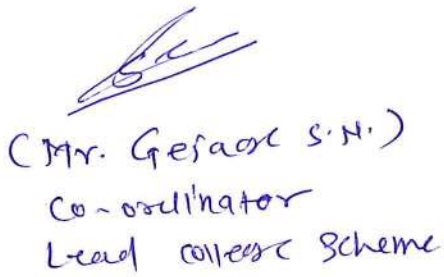 (Mr. Gejage S.N.)
Co-ordinator
Lead college Scheme